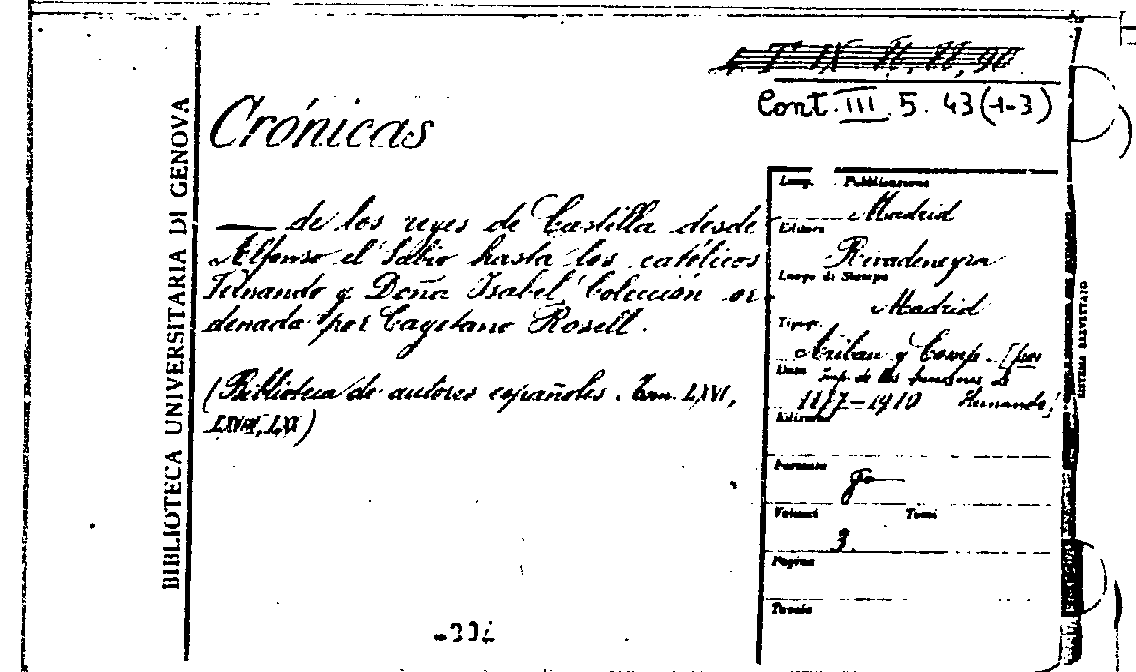 BIBLIOTECA UNIVERSITARIA DI GENOVA
Cont. III. 5. 43 (1-3)
Crónicas
— de los reyes de Castilla desde
Alfonso el Sabio hasta los católicos
Fernando y Doña Isabel, Colección or-
denada por Cayetano Rosell.
(Biblioteca de autores españoles. Tom. LXVI,
Luogo Pubblicazione
Madrid
Editore
Rivadeneyra
Luogo di Stampa
Madrid
Tipogr.
Aribau y Comp. [por
Data Imp. de los sucesores de
-1910 Hernando]
Edizione
Formato
g°
Volumi Tomi
3.
Pagine
Tavole